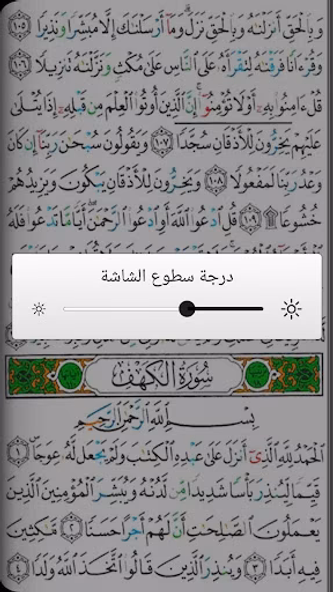 وَبِالْحَقِّ أَنزَلْنَٰهُ وَبِالْحَقِّ نَزَلَ وَمَآ أَرْسَلْنَٰكَ إِلَّا مُبَشِّرًا وَنَذِيرًا ١٠٥
وَقُرْءَانًا فَرَقْنَٰهُ لِتَقْرَأَهُۥ عَلَى النَّاسِ عَلَىٰ مُكْثٍ وَنَزَّلْنَٰهُ تَنزِيلًا ١٠٦
قُلْ ءَامِنُوا بِهِۦٓ أَوْ لَا تُؤْمِنُوٓا إِنَّ الَّذِينَ أُوتُوا الْعِلْمَ مِن قَبْلِهِۦٓ إِذَا يُتْلَىٰ
عَلَيْهِمْ يَخِرُّونَ لِلْأَذْقَانِ سُجَّدًا ١٠٧ وَيَقُولُونَ سُبْحَٰنَ رَبِّنَآ إِن كَانَ
وَعْدُ رَبِّنَا لَمَفْعُولًا ١٠٨ وَيَخِرُّونَ لِلْأَذْقَانِ يَبْكُونَ وَيَزِيدُهُمْ
خُشُوعًا ١٠٩ قُلِ ادْعُوا اللَّهَ أَوِ ادْعُوا الرَّحْمَٰنَ أَيًّا مَّا تَدْعُوا فَلَهُ
درجة سطوع الشاشة
سُورَةُ الْكَهْفِ
بِسْمِ اللَّهِ الرَّحْمَٰنِ الرَّحِيمِ
الْحَمْدُ لِلَّهِ الَّذِىٓ أَنزَلَ عَلَىٰ عَبْدِهِ الْكِتَٰبَ وَلَمْ يَجْعَل لَّهُۥ عِوَجًا ١
قَيِّمًا لِّيُنذِرَ بَأْسًا شَدِيدًا مِّن لَّدُنْهُ وَيُبَشِّرَ الْمُؤْمِنِينَ الَّذِينَ
يَعْمَلُونَ الصَّٰلِحَٰتِ أَنَّ لَهُمْ أَجْرًا حَسَنًا ٢ مَّٰكِثِينَ
فِيهِ أَبَدًا ٣ وَيُنذِرَ الَّذِينَ قَالُوا اتَّخَذَ اللَّهُ وَلَدًا ٤